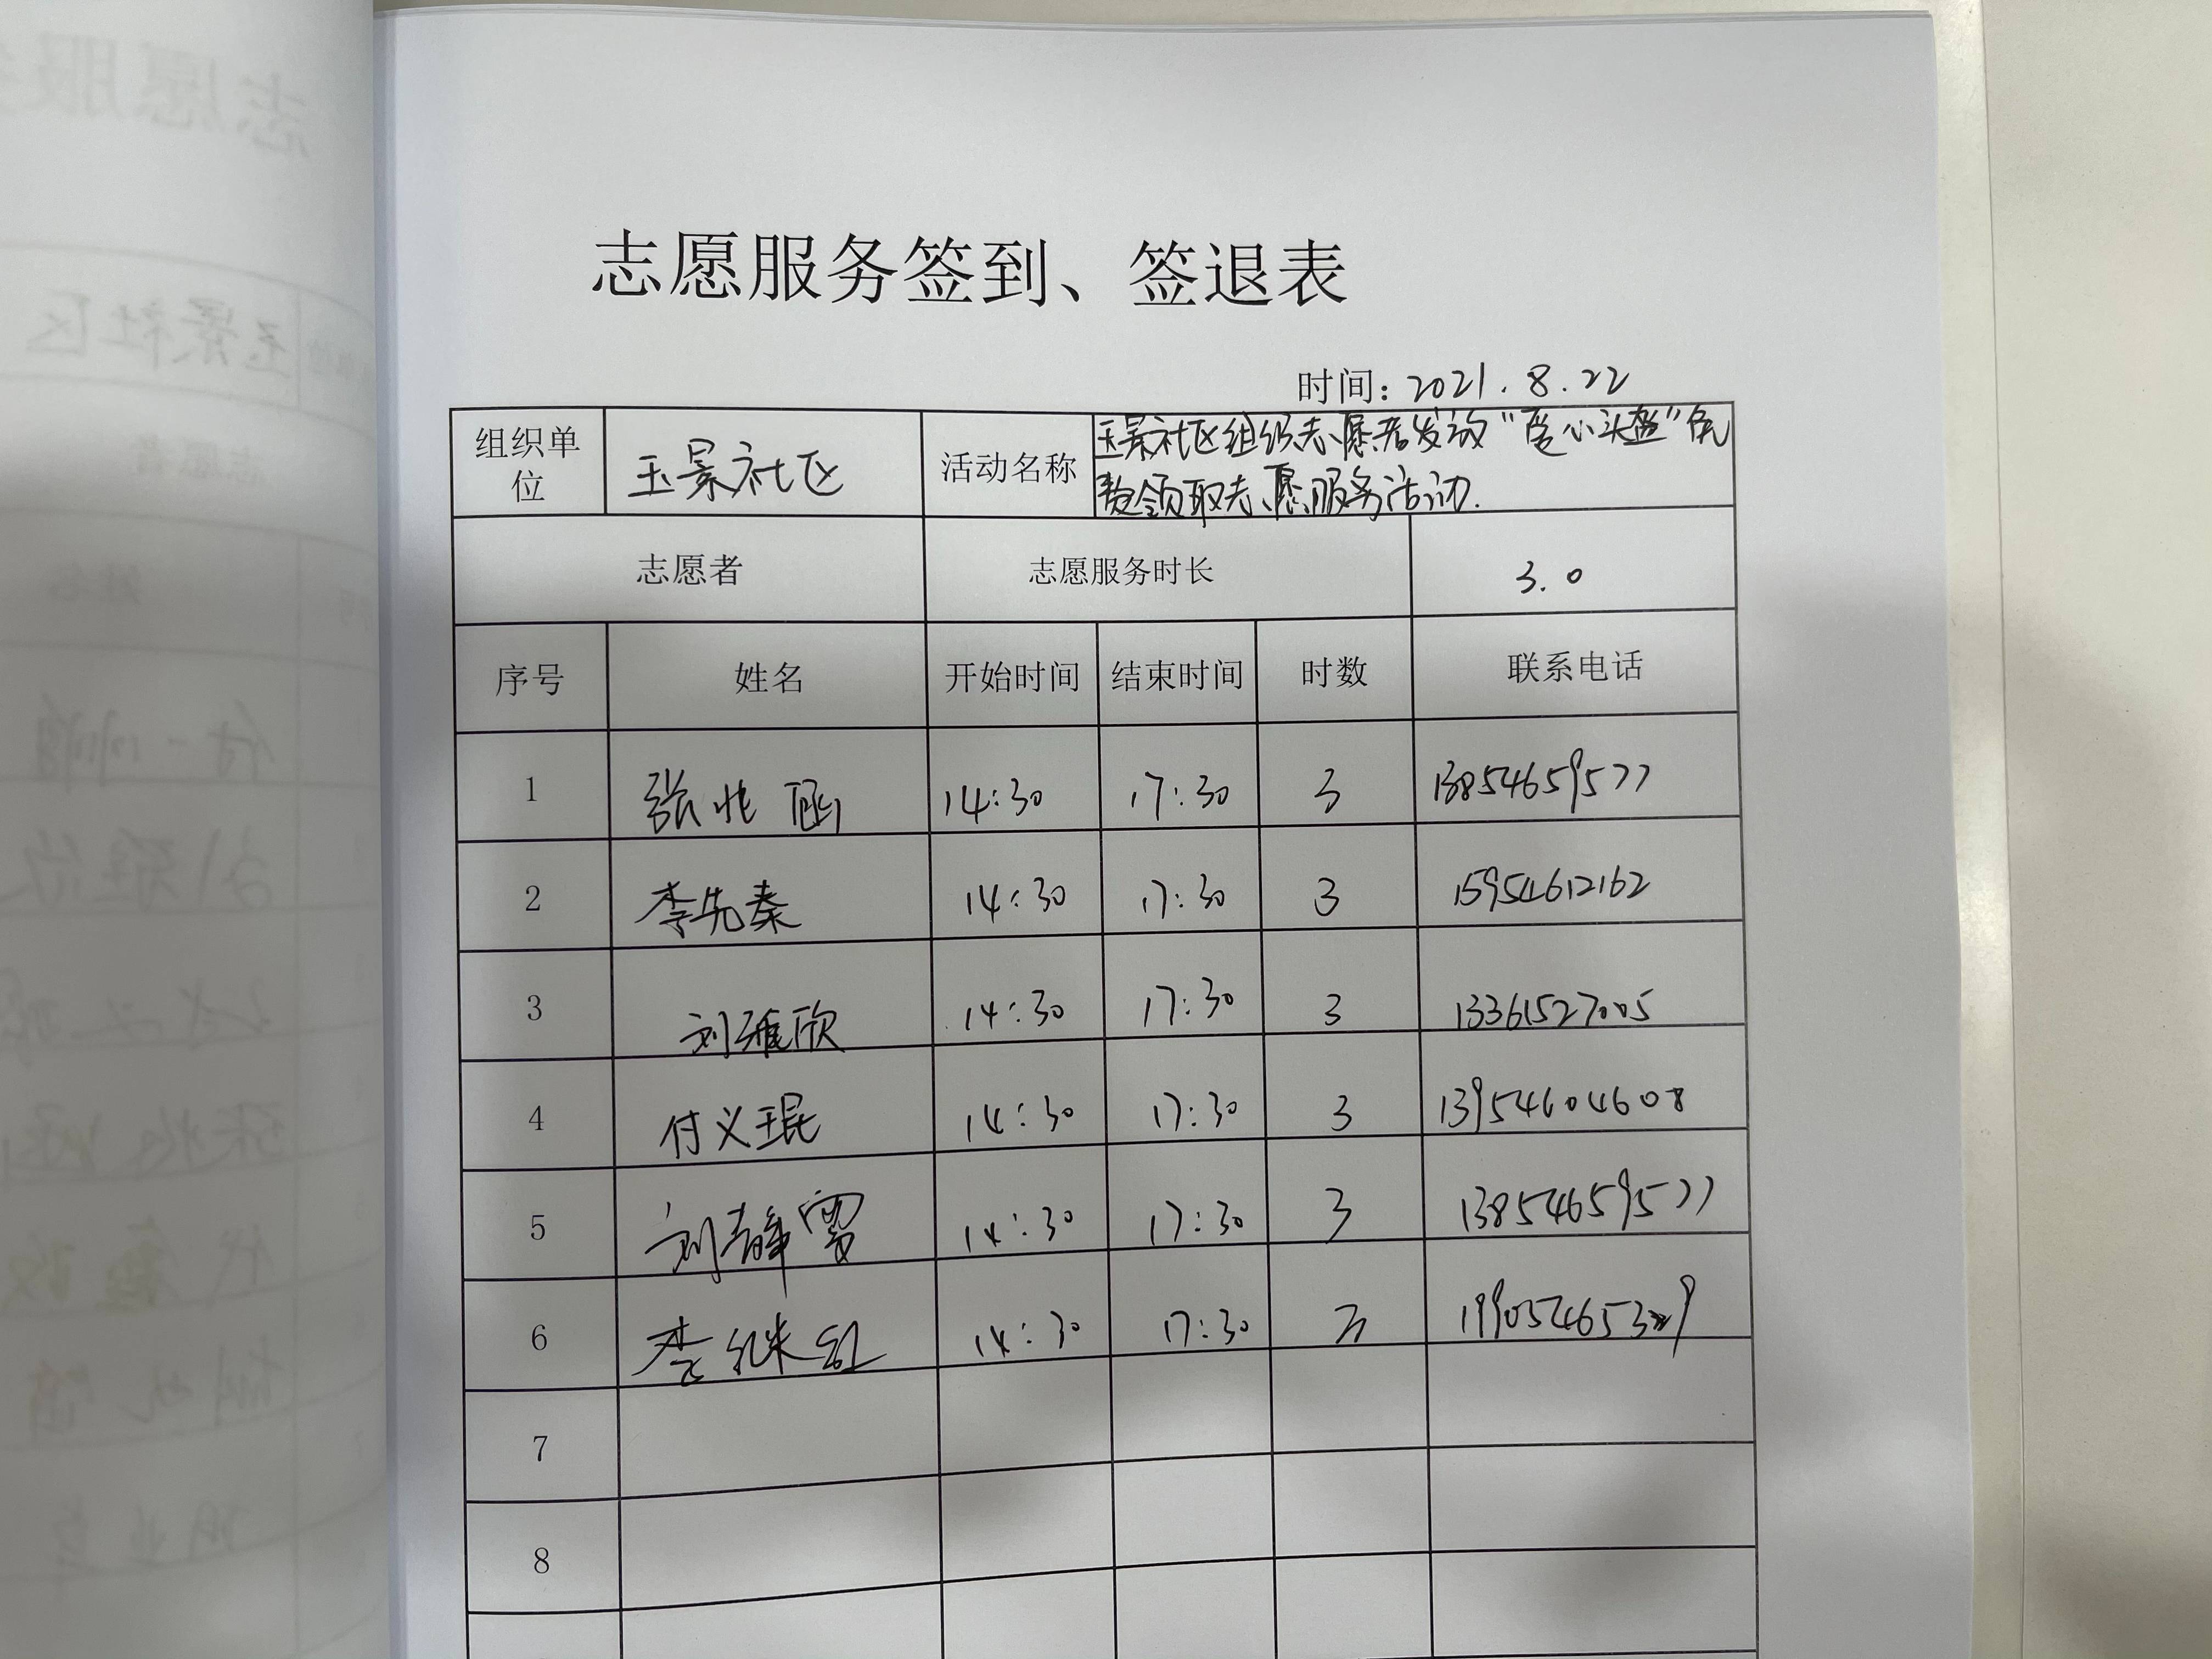 志愿服务签到、签退表
时间: 2021.8.22
组织单位 玉景社区 活动名称 玉景社区组织志愿者发放“爱心头盔”免费领取志愿服务活动.
志愿者 志愿服务时长 3.0
序号 姓名 开始时间 结束时间 时数 联系电话
1 张兆函 14:30 17:30 3 13854659577
2 李先秦 14:30 17:30 3 15954612162
3 刘雅欣 14:30 17:30 3 13361527005
4 付义琨 14:30 17:30 3 13954604608
5 刘静雯 14:30 17:30 3 13854659577
6 李继红 14:30 17:30 3
7
8